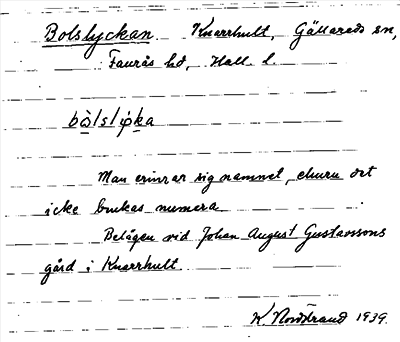 Bolslyckan Knarrhult, Gällareds sn,
Faurås hd, Hall. l.
Man erinrar sig namnet, churu det
icke brukas numera
Belägen vid Johan August Gustavssons
gård i Knarrhult
K. Nordstrand 1939.